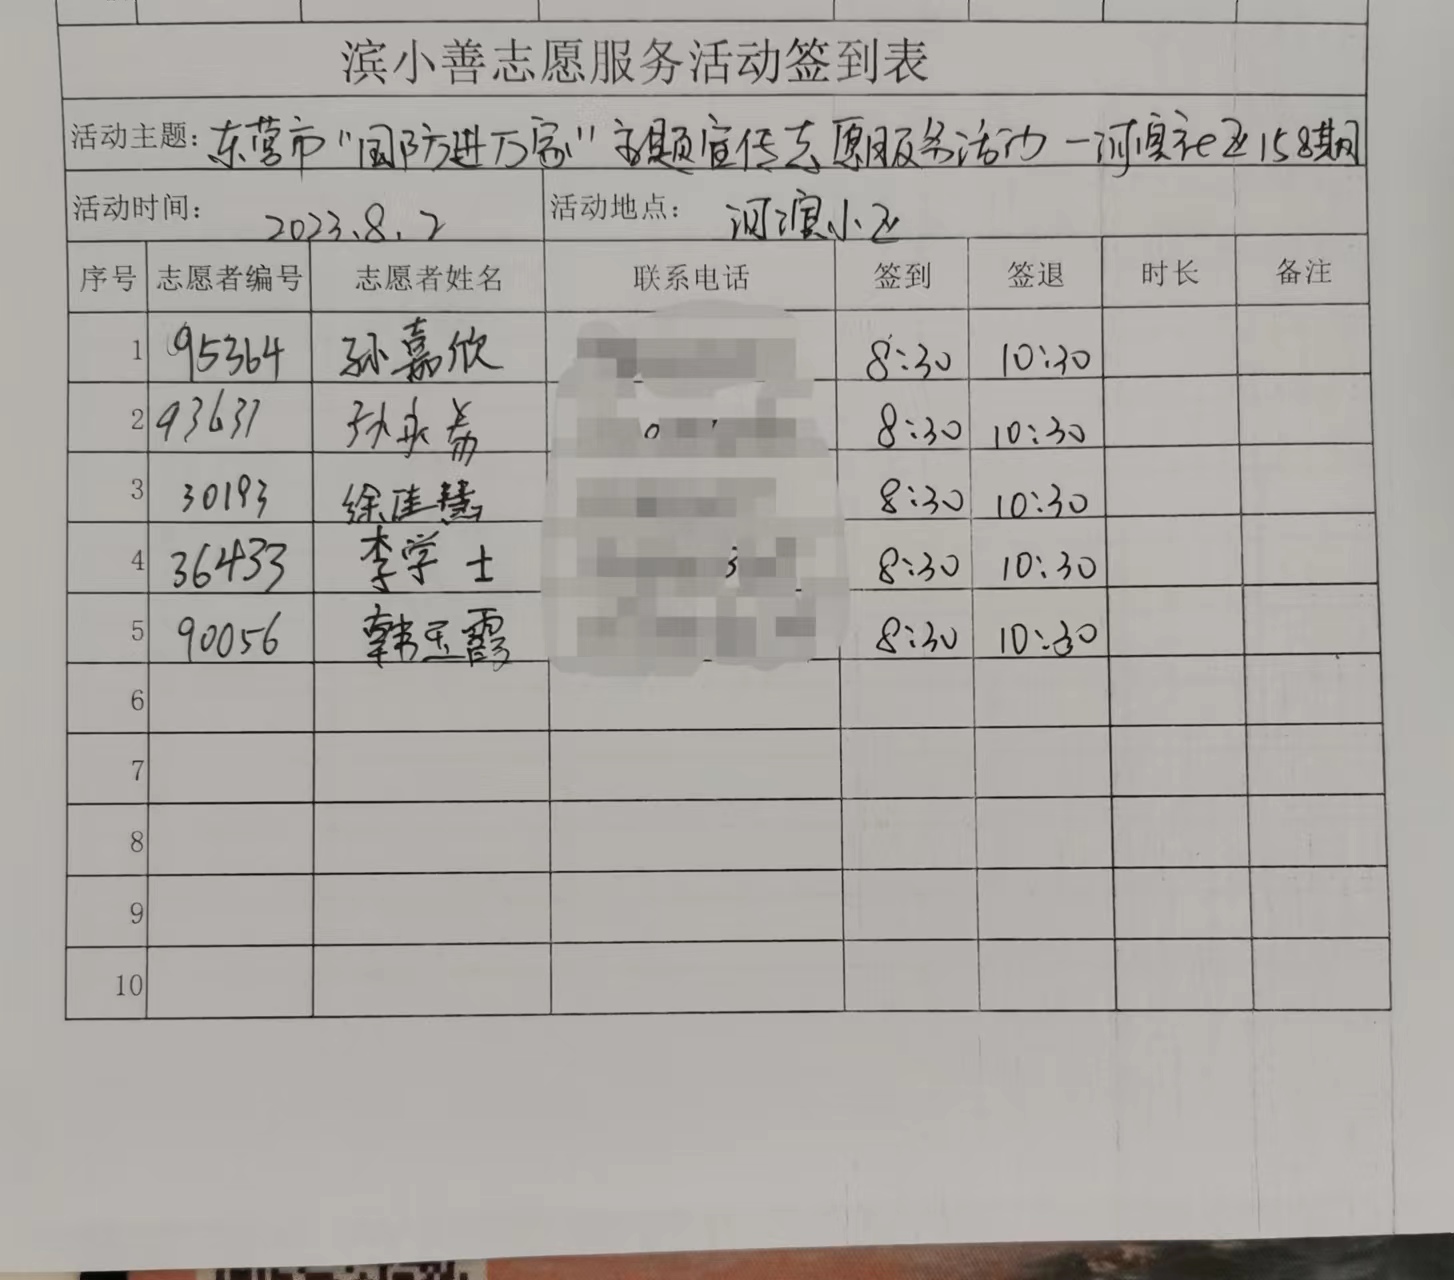 滨小善志愿服务活动签到表
活动主题: 东营市"国防进万家"主题宣传志愿服务活动-河滨社区158期
活动时间: 2023.8.2 活动地点: 河滨小区
序号 志愿者编号 志愿者姓名 联系电话 签到 签退 时长 备注
1 95364 孙嘉欣 8:30 10:30
2 93631 孙永 8:30 10:30
3 30193 徐佳慧 8:30 10:30
4 36433 李学士 8:30 10:30
5 90056 韩玉霞 8:30 10:30
6
7
8
9
10